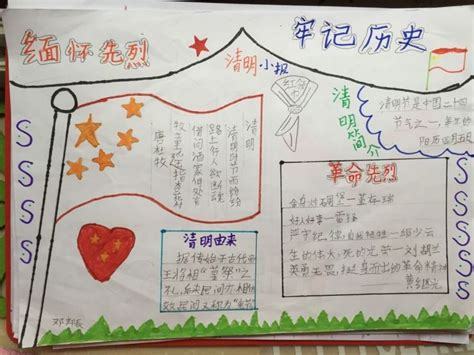 缅怀先烈
牢记历史
清明小报
红领巾
清明简介
清明节是中国二十四
节气之一,每年的
阳历四月五
清明
清明时节雨纷纷
路上行人欲断魂
借问酒家何处有
牧童遥指杏花村
唐杜牧
S
S
S
S
S
S
S
S
S
清明由来
据传始于古代帝
王将相“墓祭”之
礼,后来民间亦相仿
革命先烈
舍身对碉堡一董存瑞
好人好事一雷锋
严守纪律,自然牺牲一邱少云
生的伟大,死的光荣一刘胡兰
英勇无畏,挺直而出的革命精神
黄继光